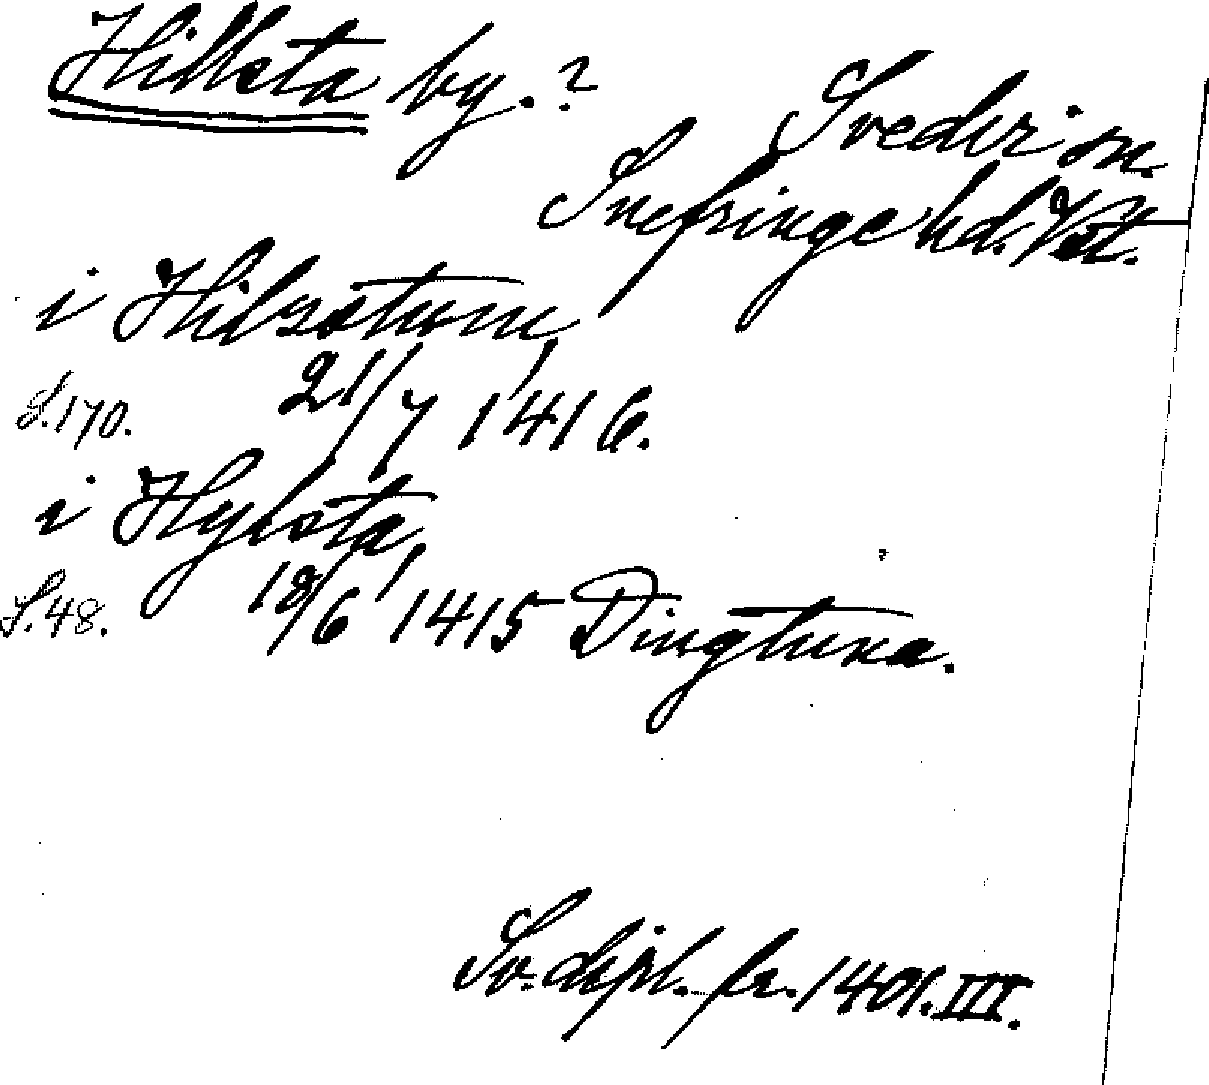 Hillsta by.?
Svedvi sn.
Snefringe hd. Vst.
i Hilzstum,
S.170. 21/7 1416.
i Hylsta,
S.48. 18/6 1415 Dingtuna.
Sv. dipl. fr. 1401. III.